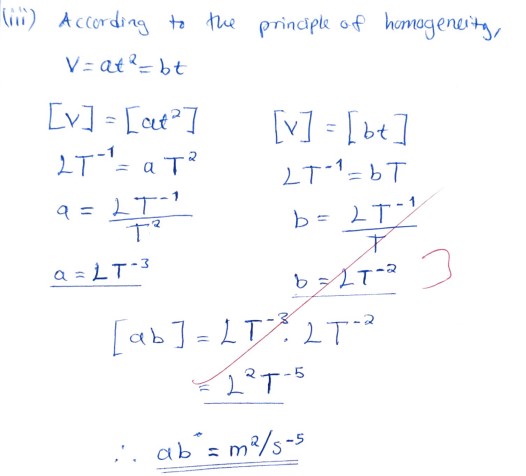 (iii) According to the principle of homogeneity,
V = at² = bt
[V] = [at²]
LT⁻¹ = a T²
a = LT⁻¹ / T²
a = LT⁻³
[V] = [bt]
LT⁻¹ = bT
b = LT⁻¹ / T
b = LT⁻²
3
[ab] = LT⁻³ . LT⁻²
= L²T⁻⁵
∴ ab = m²/s⁻⁵